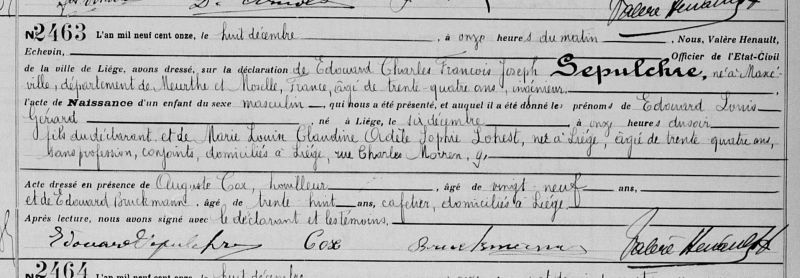 Valère Henault
N° 2463 L'an mil neuf cent onze, le huit décembre, à onze heures du matin, Nous, Valère Henault,
Echevin, Officier de l'Etat-Civil
de la ville de Liége, avons dressé, sur la déclaration de Edouard Charles François Joseph Sepulchre, né à Maxé-
ville, département de Meurthe et Moselle, France, âgé de trente quatre ans, ingénieur,
l'acte de Naissance d'un enfant du sexe masculin, qui nous a été présenté, et auquel il a été donné les prénoms de Edouard Louis
Gérard né à Liége, le six décembre à onze heures du soir
fils du déclarant et de Marie Louise Claudine Odile Sophie Lohest, née à Liége, âgée de trente quatre ans,
sans profession, conjoints, domiciliés à Liége, rue Charles Morren, 9,
Acte dressé en présence de Auguste Cox, houilleur, âgé de vingt neuf ans,
et de Edouard Bruckmann, âgé de trente huit ans, cafetier, domiciliés à Liége.
Après lecture, nous avons signé avec le déclarant et les témoins.
Edouard Sepulchre Cox Bruckmann Valère Henault
N° 2464 L'an mil neuf cent onze, le huit décembre